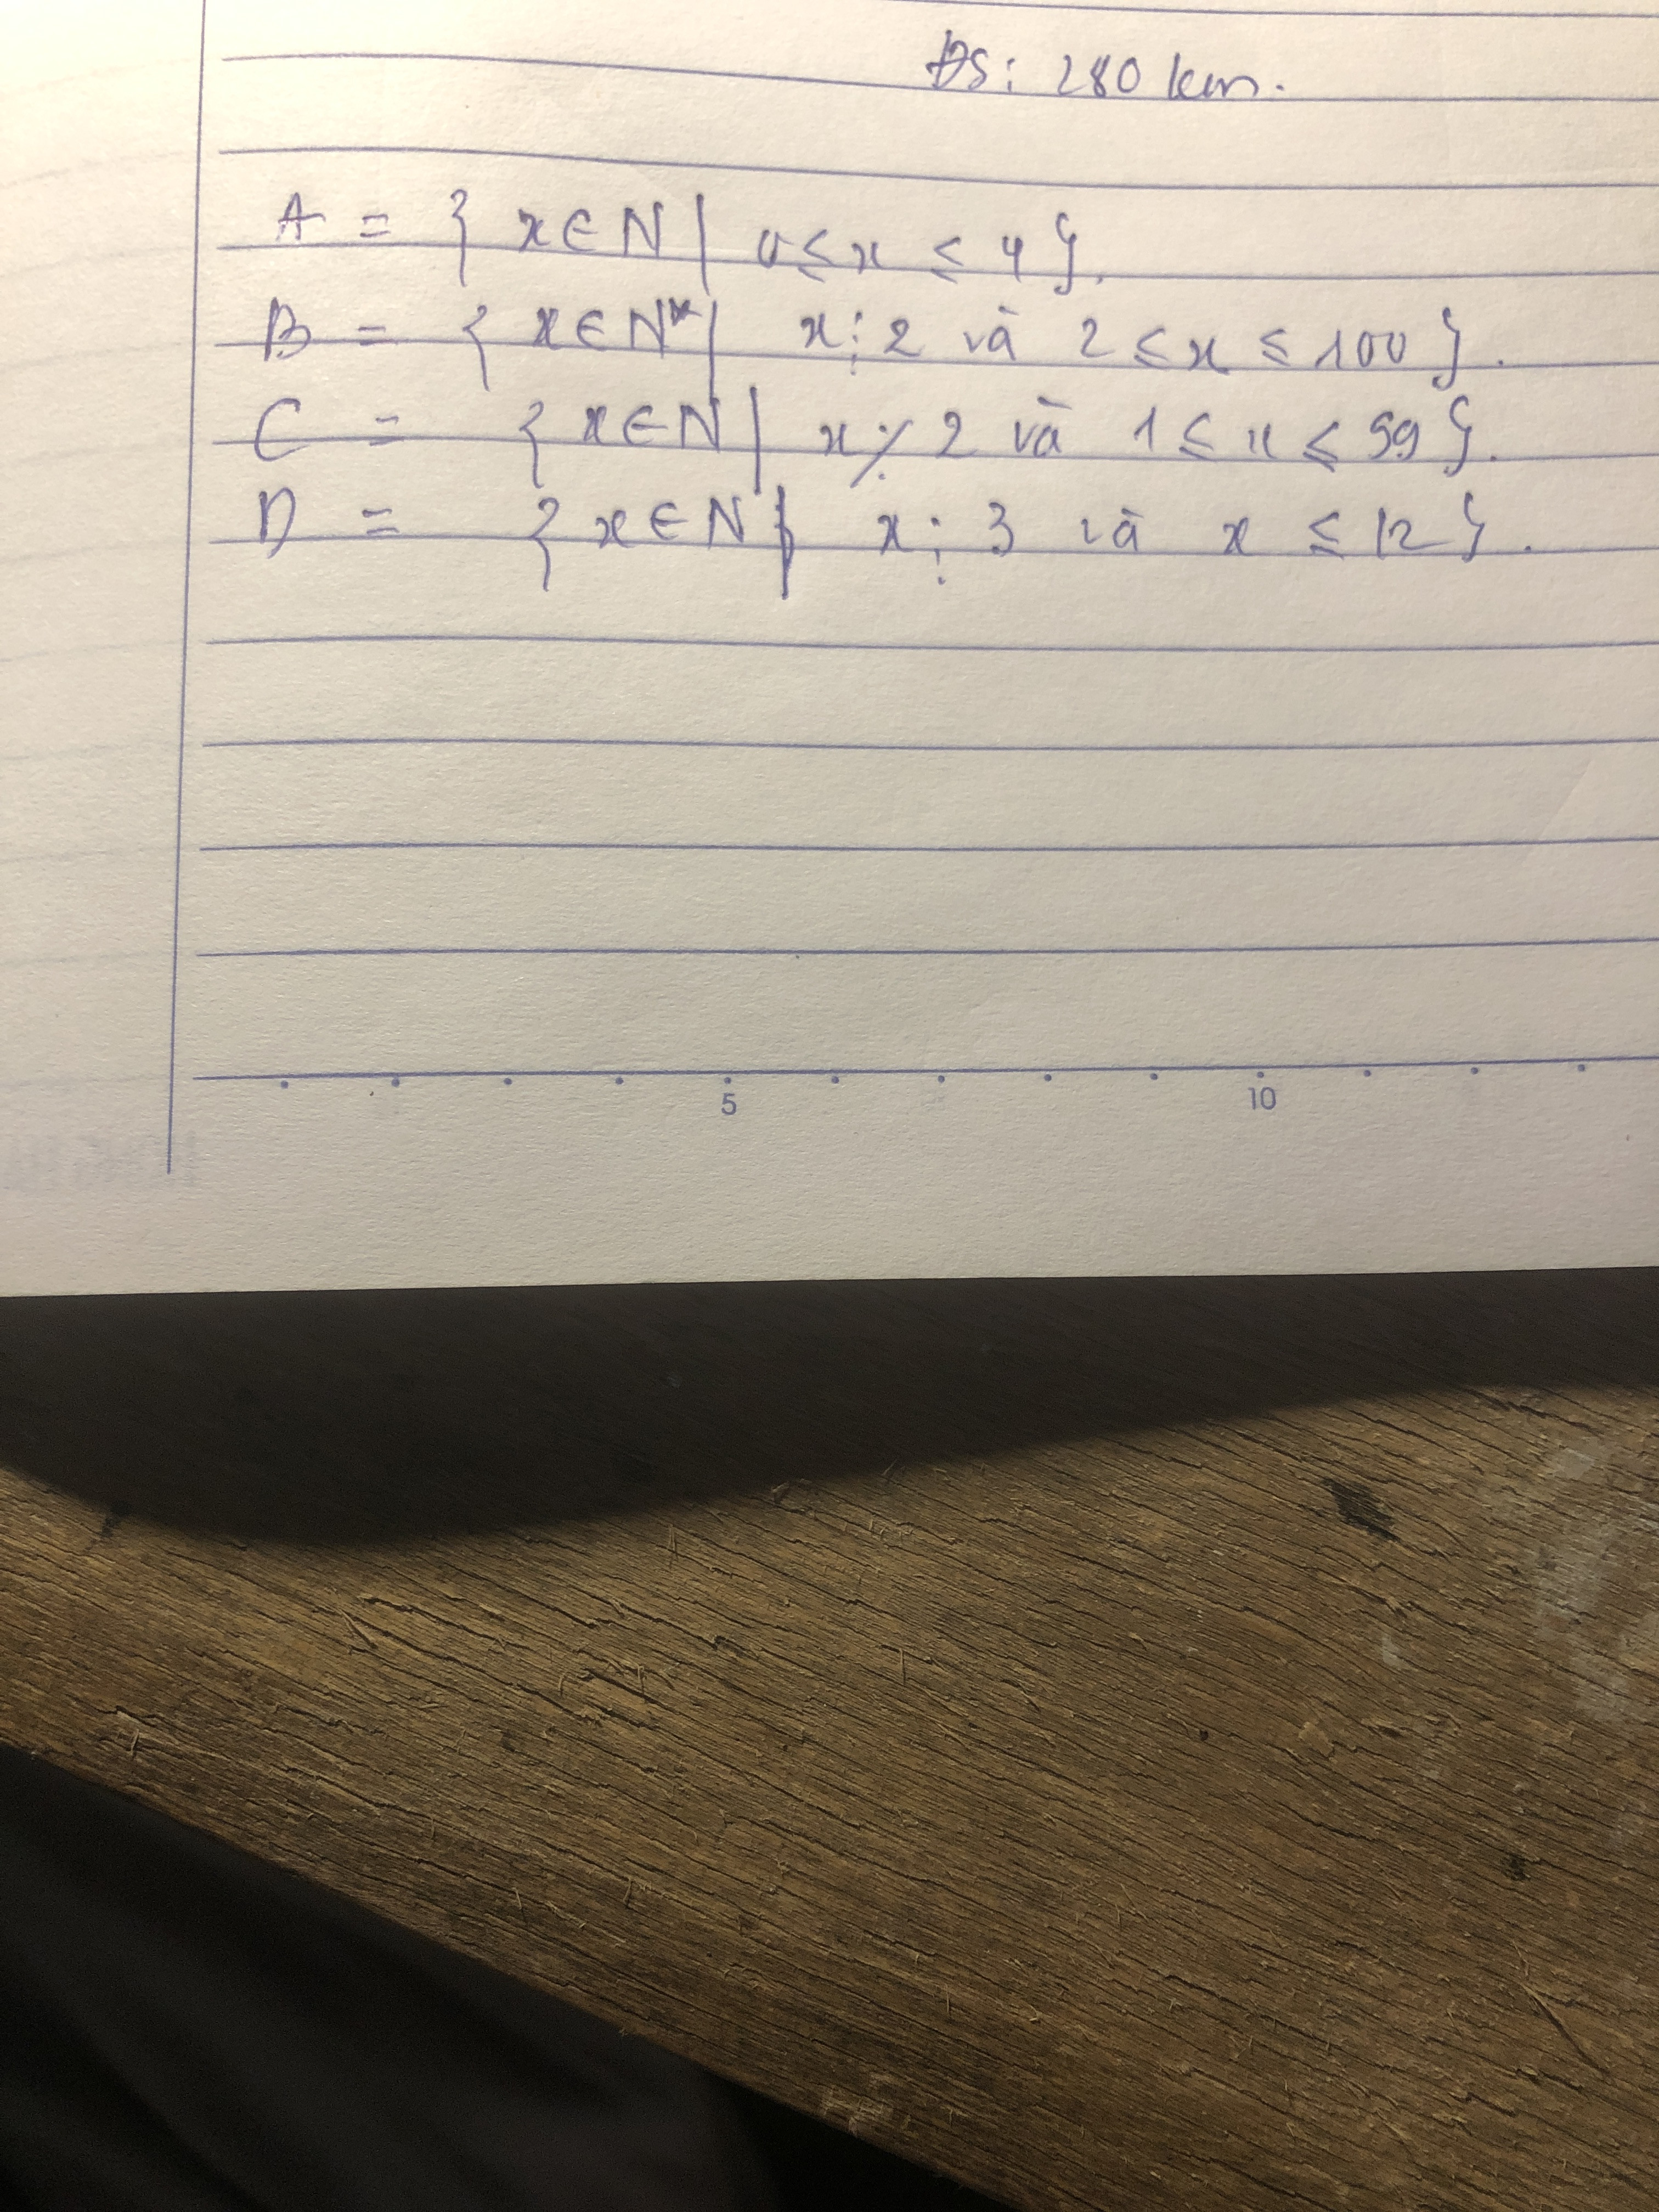 ĐS: 280 km.
A = { x ∈ N | 0 ≤ x ≤ 4 }.
B = { x ∈ N* | x ⋮ 2 và 2 ≤ x ≤ 100 }.
C = { x ∈ N | x ⋮̸ 2 và 1 ≤ x ≤ 99 }.
D = { x ∈ N | x ⋮ 3 và x ≤ 12 }.
5 10